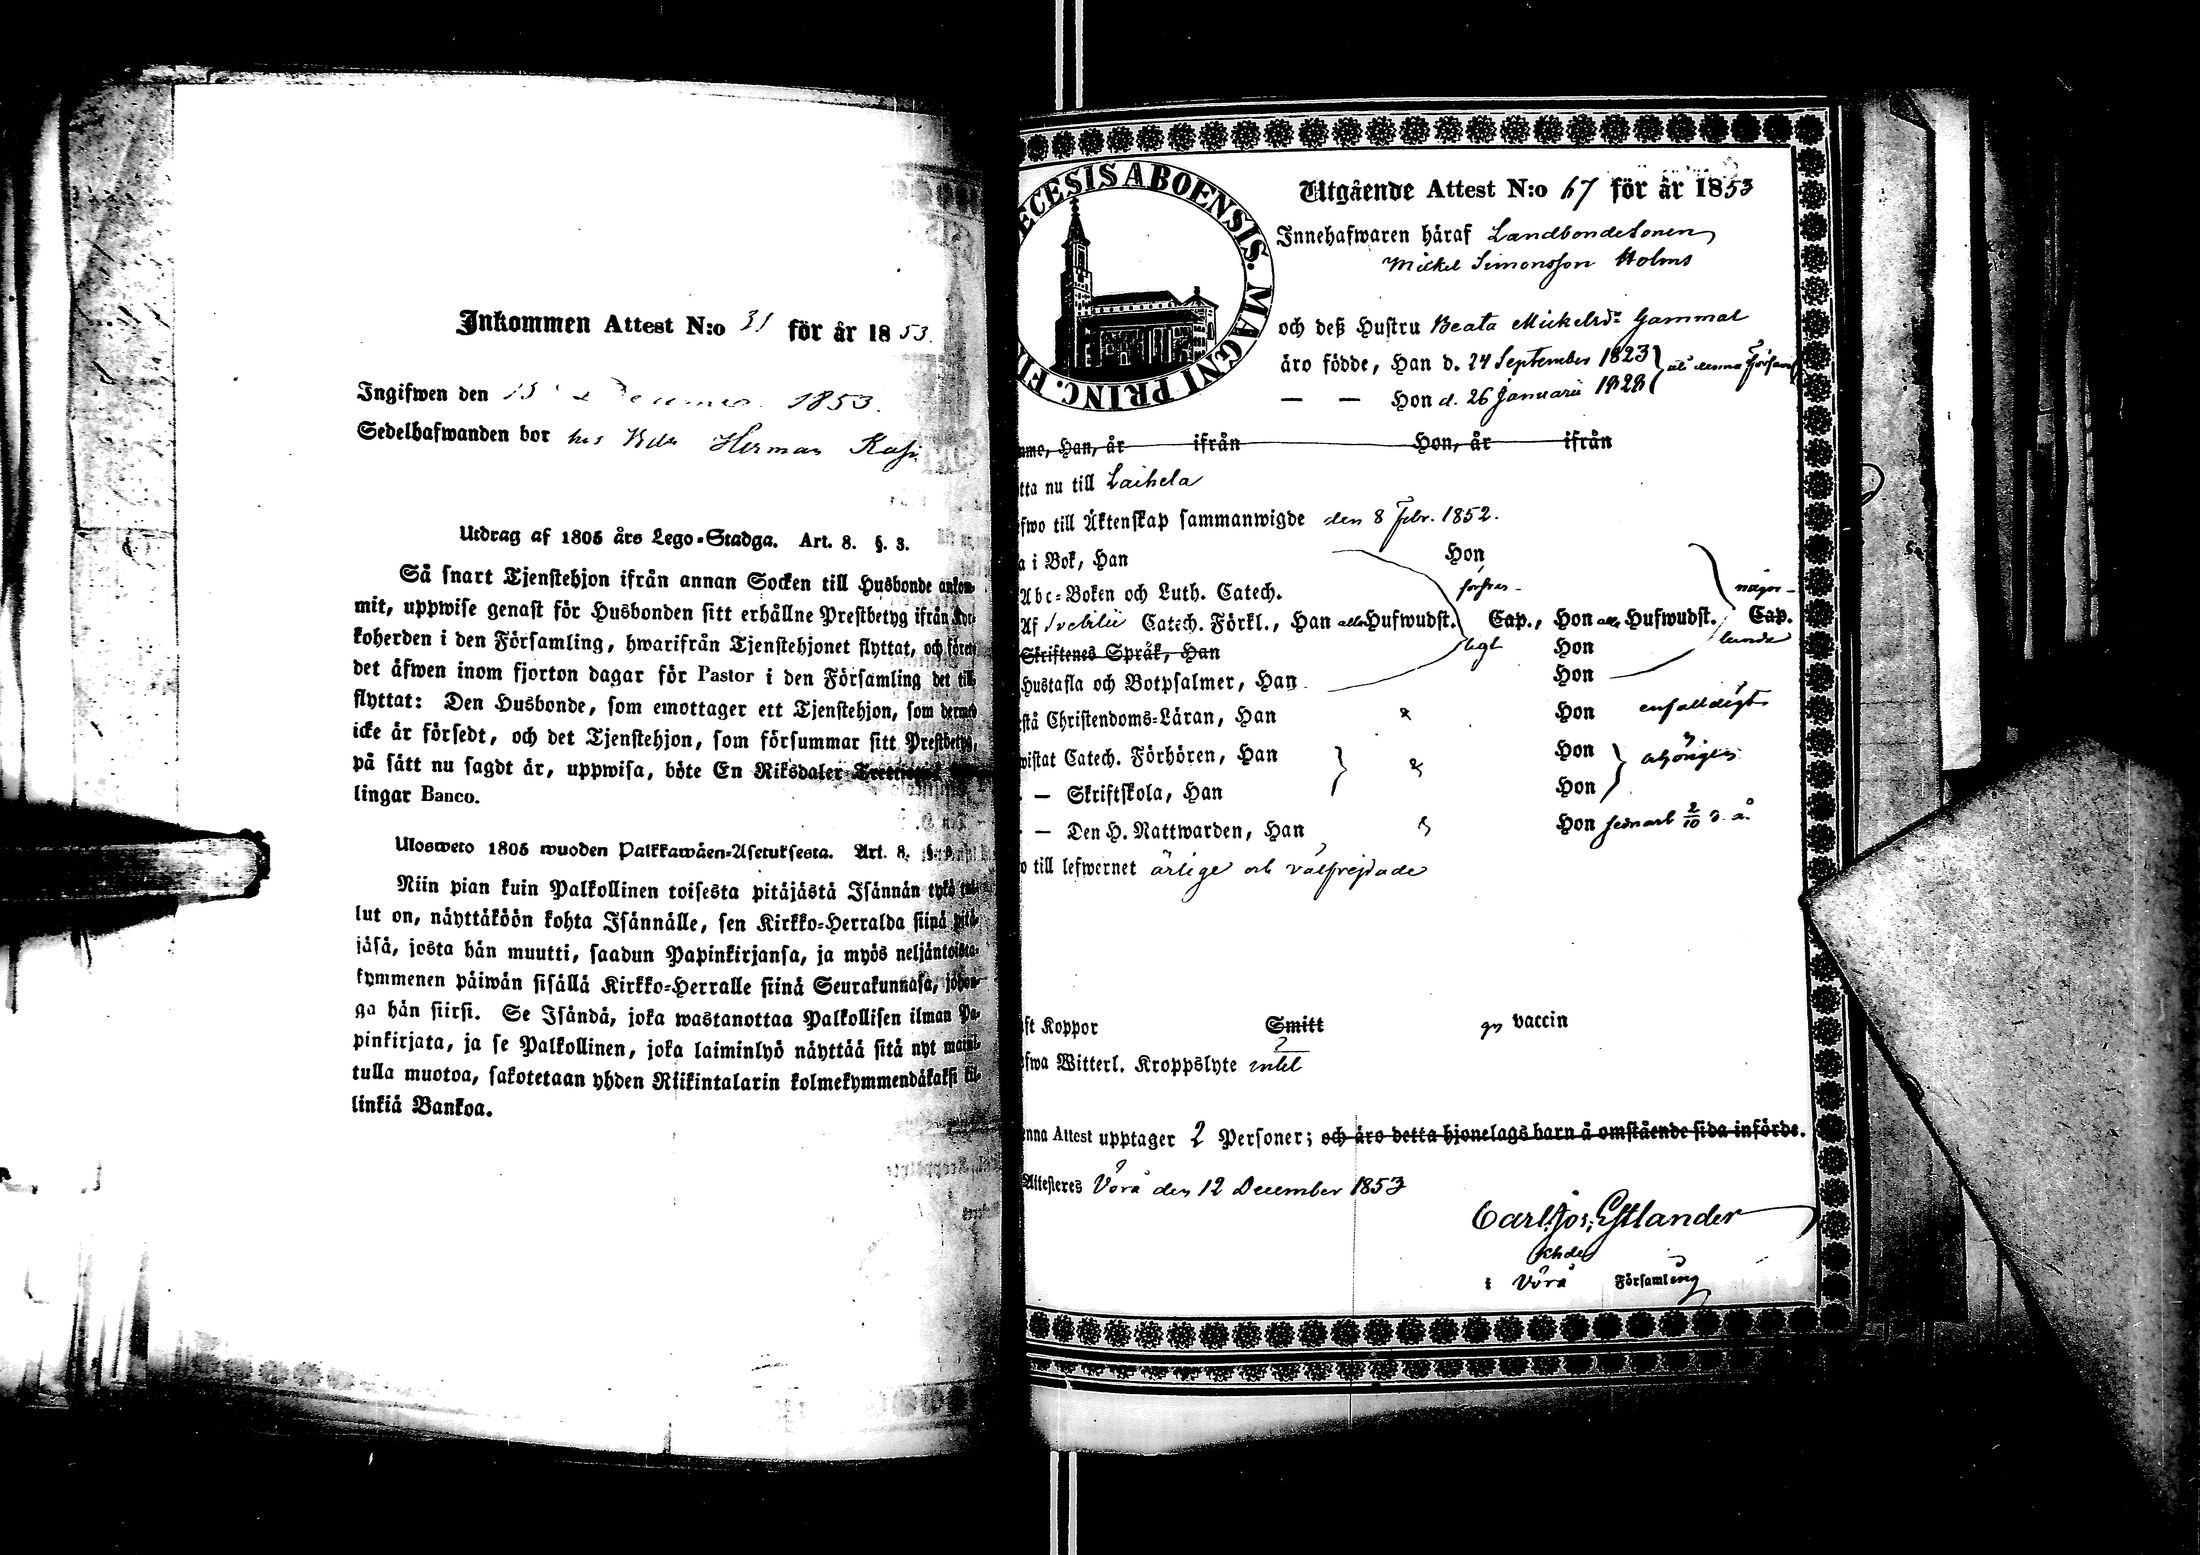 Inkommen Attest N:o 31 för år 1853.
Ingifwen den 1853.
Sedelhafwanden bor hos Herman
Utdrag af 1805 års Lego-Stadga. Art. 8. §. 3.
Så snart Tjenstehjon ifrån annan Socken till Husbonde ankom-
mit, uppwise genast för Husbonden sitt erhållne Prestbetyg ifrån Kyr-
koherden i den Församling, hwarifrån Tjenstehjonet flyttat, och förete
det äfwen inom fjorton dagar för Pastor i den Församling det till-
flyttat: Den Husbonde, som emottager ett Tjenstehjon, som dermed
icke är försedt, och det Tjenstehjon, som försummar sitt Prestbetyg,
på sätt nu sagdt är, uppwisa, böte En Riksdaler
lingar Banco.
Ulosweto 1805 wuoden Palkkawäen-Asetuksesta. Art. 8. §. 3.
Niin pian kuin Palkollinen toisesta pitäjästä Isännän tykö tul-
lut on, näyttäköön kohta Isännälle, sen Kirkko-Herralda siinä pitä-
jäsä, josta hän muutti, saadun Papinkirjansa, ja myös neljäntoista-
kymmenen päiwän sisällä Kirkko-Herralle siinä Seurakunnasa, johon-
ga hän siirsi. Se Isändä, joka wastanottaa Palkollisen ilman Pa-
pinkirjata, ja se Palkollinen, joka laiminlyö näyttää sitä nyt maini-
tulla muotoa, sakotetaan yhden Riikintalarin kolmekymmendäkaksi kil-
linkiä Bankoa.
ECESIS ABOENSIS. MAGNI PRINC. FI
Utgående Attest N:o 67 för år 1853
Innehafwaren häraf Landbondesonen
Mickel Simonsson Holms
och deß Hustru Beata Mickelsdr Gammal
äro födde, Han d. 24 September 1823 denna Församl
— — Hon d. 26 Januarii 1828
mme, Han, år ifrån Hon, år ifrån
tta nu till Laihela
fwo till Äktenskap sammanwigde den 8 Febr. 1852.
a i Bok, Han Hon
Abc-Boken och Luth. Catech.
Af Svebilii Catech. Förkl., Han alla Hufwudst. Cap., Hon alla Hufwudst. Cap.
Skriftenes Språk, Han Hon
Hustafla och Botpsalmer, Han Hon
stå Christendoms-Läran, Han & Hon enfalldigt
wistat Catech. Förhören, Han & Hon
— Skriftskola, Han Hon
— Den H. Nattwarden, Han & Hon sednast 2/10 d. å.
o till lefwernet ärlige och välfrejdade
ft Koppor Smitt vaccin
fwa Witterl. Kroppslyte intet
enna Attest upptager 2 Personer; och äro detta hjonelags barn å omstående sida införde.
Attesteres Vörå den 12 December 1853
Carl Jos. Estlander
Khde
i Vörå Församling